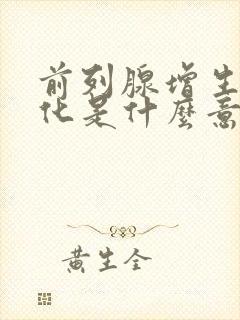 前列腺增生
化是什麼意
黄生全